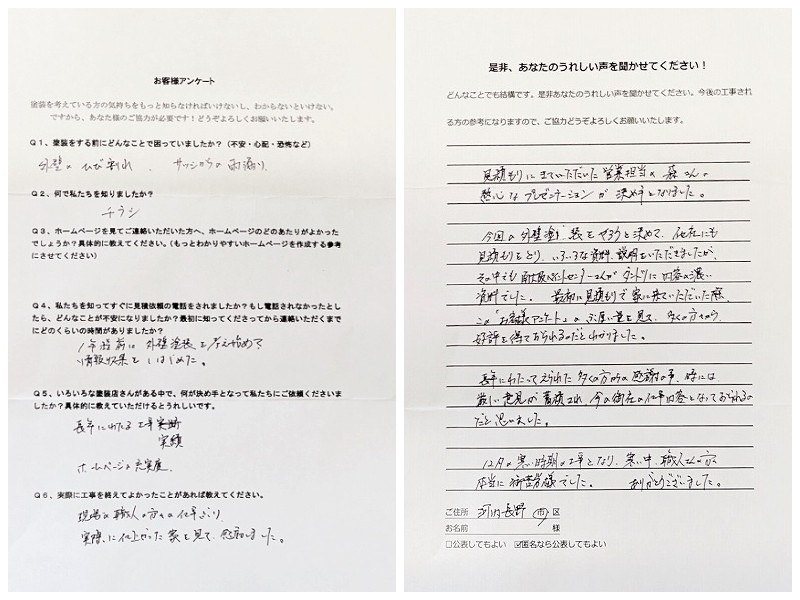 お客様アンケート
塗装を考えている方の気持ちをもっと知らなければいけないし、わからないといけない。
ですから、あなた様のご協力が必要です！どうぞよろしくお願いいたします。
Q1、塗装をする前にどんなことで困っていましたか？（不安・心配・恐怖など）
外壁のひび割れ、サッシからの雨漏り
Q2、何で私たちを知りましたか？
チラシ
Q3、ホームページを見てご連絡いただいた方へ、ホームページのどのあたりがよかった
でしょうか？具体的に教えてください。（もっとわかりやすいホームページを作成する参考
にさせてください）
Q4、私たちを知ってすぐに見積依頼の電話をされましたか？もし電話されなかったとし
たら、どんなことが不安になりましたか？最初に知ってくださってから連絡いただくまで
にどのくらいの時間がありましたか？
1年程前に外壁塗装を考え始めて
情報収集をしはじめた。
Q5、いろいろな塗装店さんがある中で、何が決め手となって私たちにご依頼くださいま
したか？具体的に教えていただけるとうれしいです。
長年にわたる工事
実績
ホームページの充実度。
Q6、実際に工事を終えてよかったことがあれば教えてください。
現場の職人の方々の仕事ぶり
実際に仕上がった家を見て、感動しました。
是非、あなたのうれしい声を聞かせてください！
どんなことでも結構です。是非あなたのうれしい声を聞かせてください。今後の工事され
る方の参考になりますので、ご協力どうぞよろしくお願いいたします。
見積もりにきていただいた営業担当の森さんの
熱心なプレゼンテーションが決め手となりました。
今回の外壁塗装をやろうと決めて、他社にも
見積もりをとり、いろいろな資料、説明をいただきましたが、
その中でも南大阪ペイントセンターさんがダントツに内容の濃い
資料でした。最初に見積もりで家に来ていただいた際、
この「お客様アンケート」のぶ厚い量を見て、多くの方々から
好評を得ておられるのだとわかりました。
長年にわたってえられた多くの方々の感謝の声、時には
厳しい意見が蓄積され、今の御社の仕事内容となっておられるの
だと思いました。
12月の寒い時期の工事となり、寒い中、職人さんの方々
本当に御苦労様でした。ありがとうございました。
ご住所 河内長野 市 区
お名前 様
□公表してもよい ☑匿名なら公表してもよい